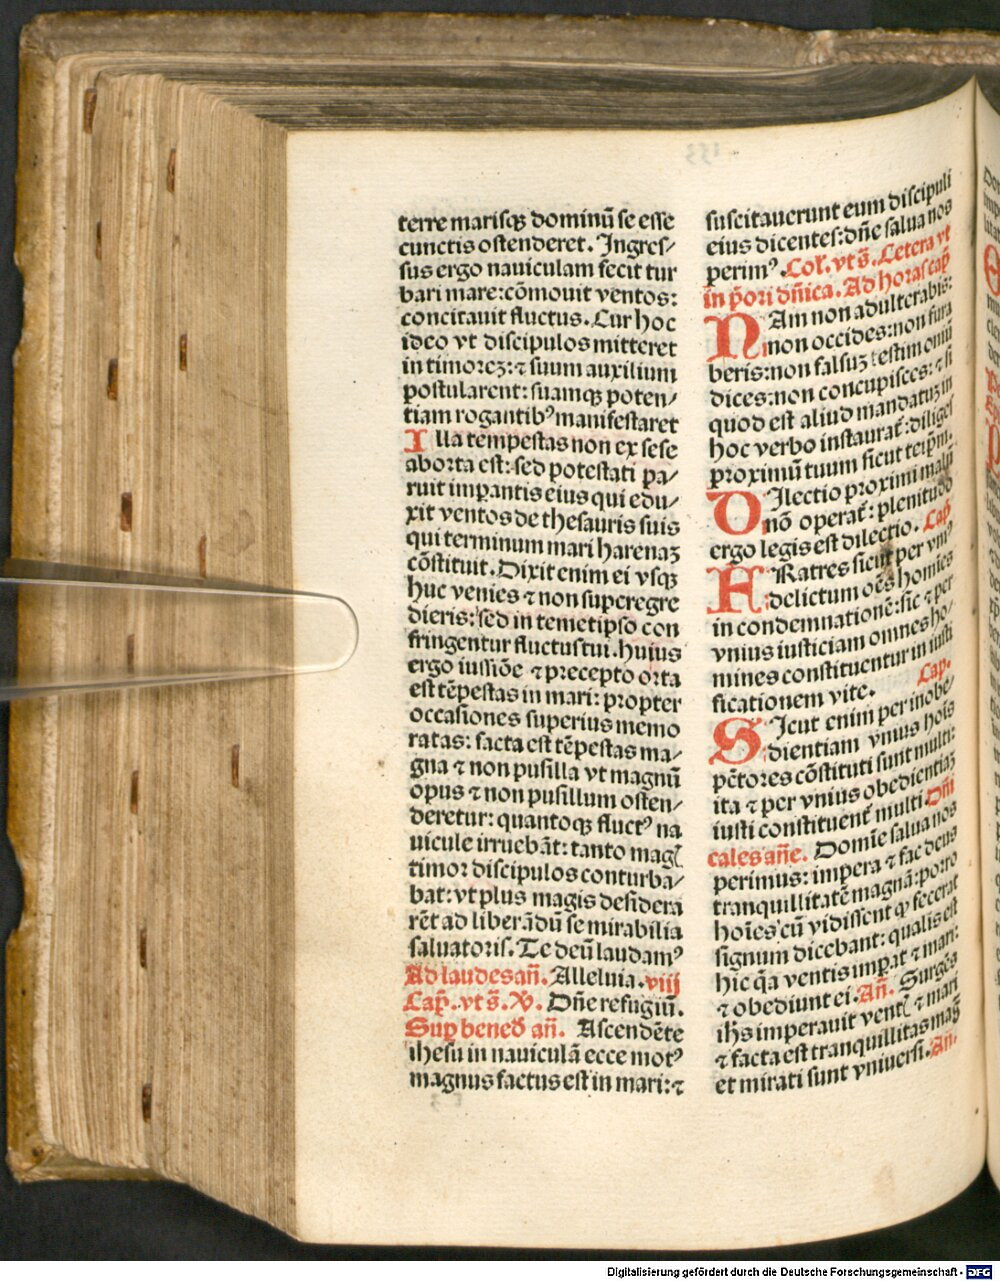 terre marisqꝫ dominū se esse
cunctis ostenderet. Ingres/
sus ergo nauiculam fecit tur
bari mare:cōmouit ventos:
concitauit fluctus. Cur hoc
ideo vt discipulos mitteret
in timorez:⁊ suum auxilium
postularent: suamqꝫ poten/
tiam rogantibꝰ manifestaret
Illa tempestas non ex sese
aborta est: sed potestati pa/
ruit imꝑantis eius qui edu/
xit ventos de thesauris suis
qui terminum mari harenaꝫ
cōstituit. Dixit enim ei vsqꝫ
huc venies ⁊ non supergre
dieris: sed in temetipso con
fringentur fluctus tui. Huius
ergo iussiōe ⁊ precepto orta
est tēpestas in mari: propter
occasiones superius memo
ratas: facta est tēpestas ma/
gna ⁊ non pusilla vt magnū
opus ⁊ non pusillum osten/
deretur: quantoqꝫ fluctꝰ na
uicule irruebāt: tanto mag̃
timor discipulos conturba/
bat: vt plus magis desidera
rēt ad liberādū se mirabilia
saluatoris. Te deū laudamꝰ
Ad laudes an̄. Alleluia. viij
Cap̄. vt s̄. V̄. Dn̄e refugiū.
Suꝑ bened̄ an̄. Ascendēte
ihesu in nauiculā ecce motꝰ
magnus factus est in mari: ⁊
suscitauerunt eum discipuli
eius dicentes: dn̄e salua nos
perimꝰ. Col̄. vt s̄. Cetera vt
in p̄ori dn̄ica. Ad horas cap̄
NAm non adulterabis:
non occides: non fura
beris: non falsuꝫ testimoniū
dices: non concupisces: ⁊ si
quod est aliud mandatuꝫ in
hoc verbo instaurat̄: diliges
proximū tuum sicut teip̄m.
DIlectio proximi malū
nō operat̄: plenitudo
ergo legis est dilectio. Cap̄
FRatres sicut per vniꝰ
delictum oēs homies
in condemnationē: sic ⁊ per
vnius iusticiam omnes ho/
mines constituentur in iusti
ficationem vite. Cap.
SIcut enim per inobe/
dientiam vnius hoīs
pc̄tores cōstituti sunt multi:
ita ⁊ per vnius obedientiaꝫ
iusti constituent̄ multi. Dn̄i
cales an̄e. Domīe salua nos
perimus: impera ⁊ fac deus
tranquillitatē magnā: porro
hoīes cū vidissent qꝫ fecerat
signum dicebant: qualis est
hic q̄a ventis imꝑat ⁊ mari:
⁊ obediunt ei. An̄. Surgēs
ihs imperauit vent̄ ⁊ mari
⁊ facta est tranquillitas mag̃
et mirati sunt vniuersi. An.
Digitalisierung gefördert durch die Deutsche Forschungsgemeinschaft - DFG